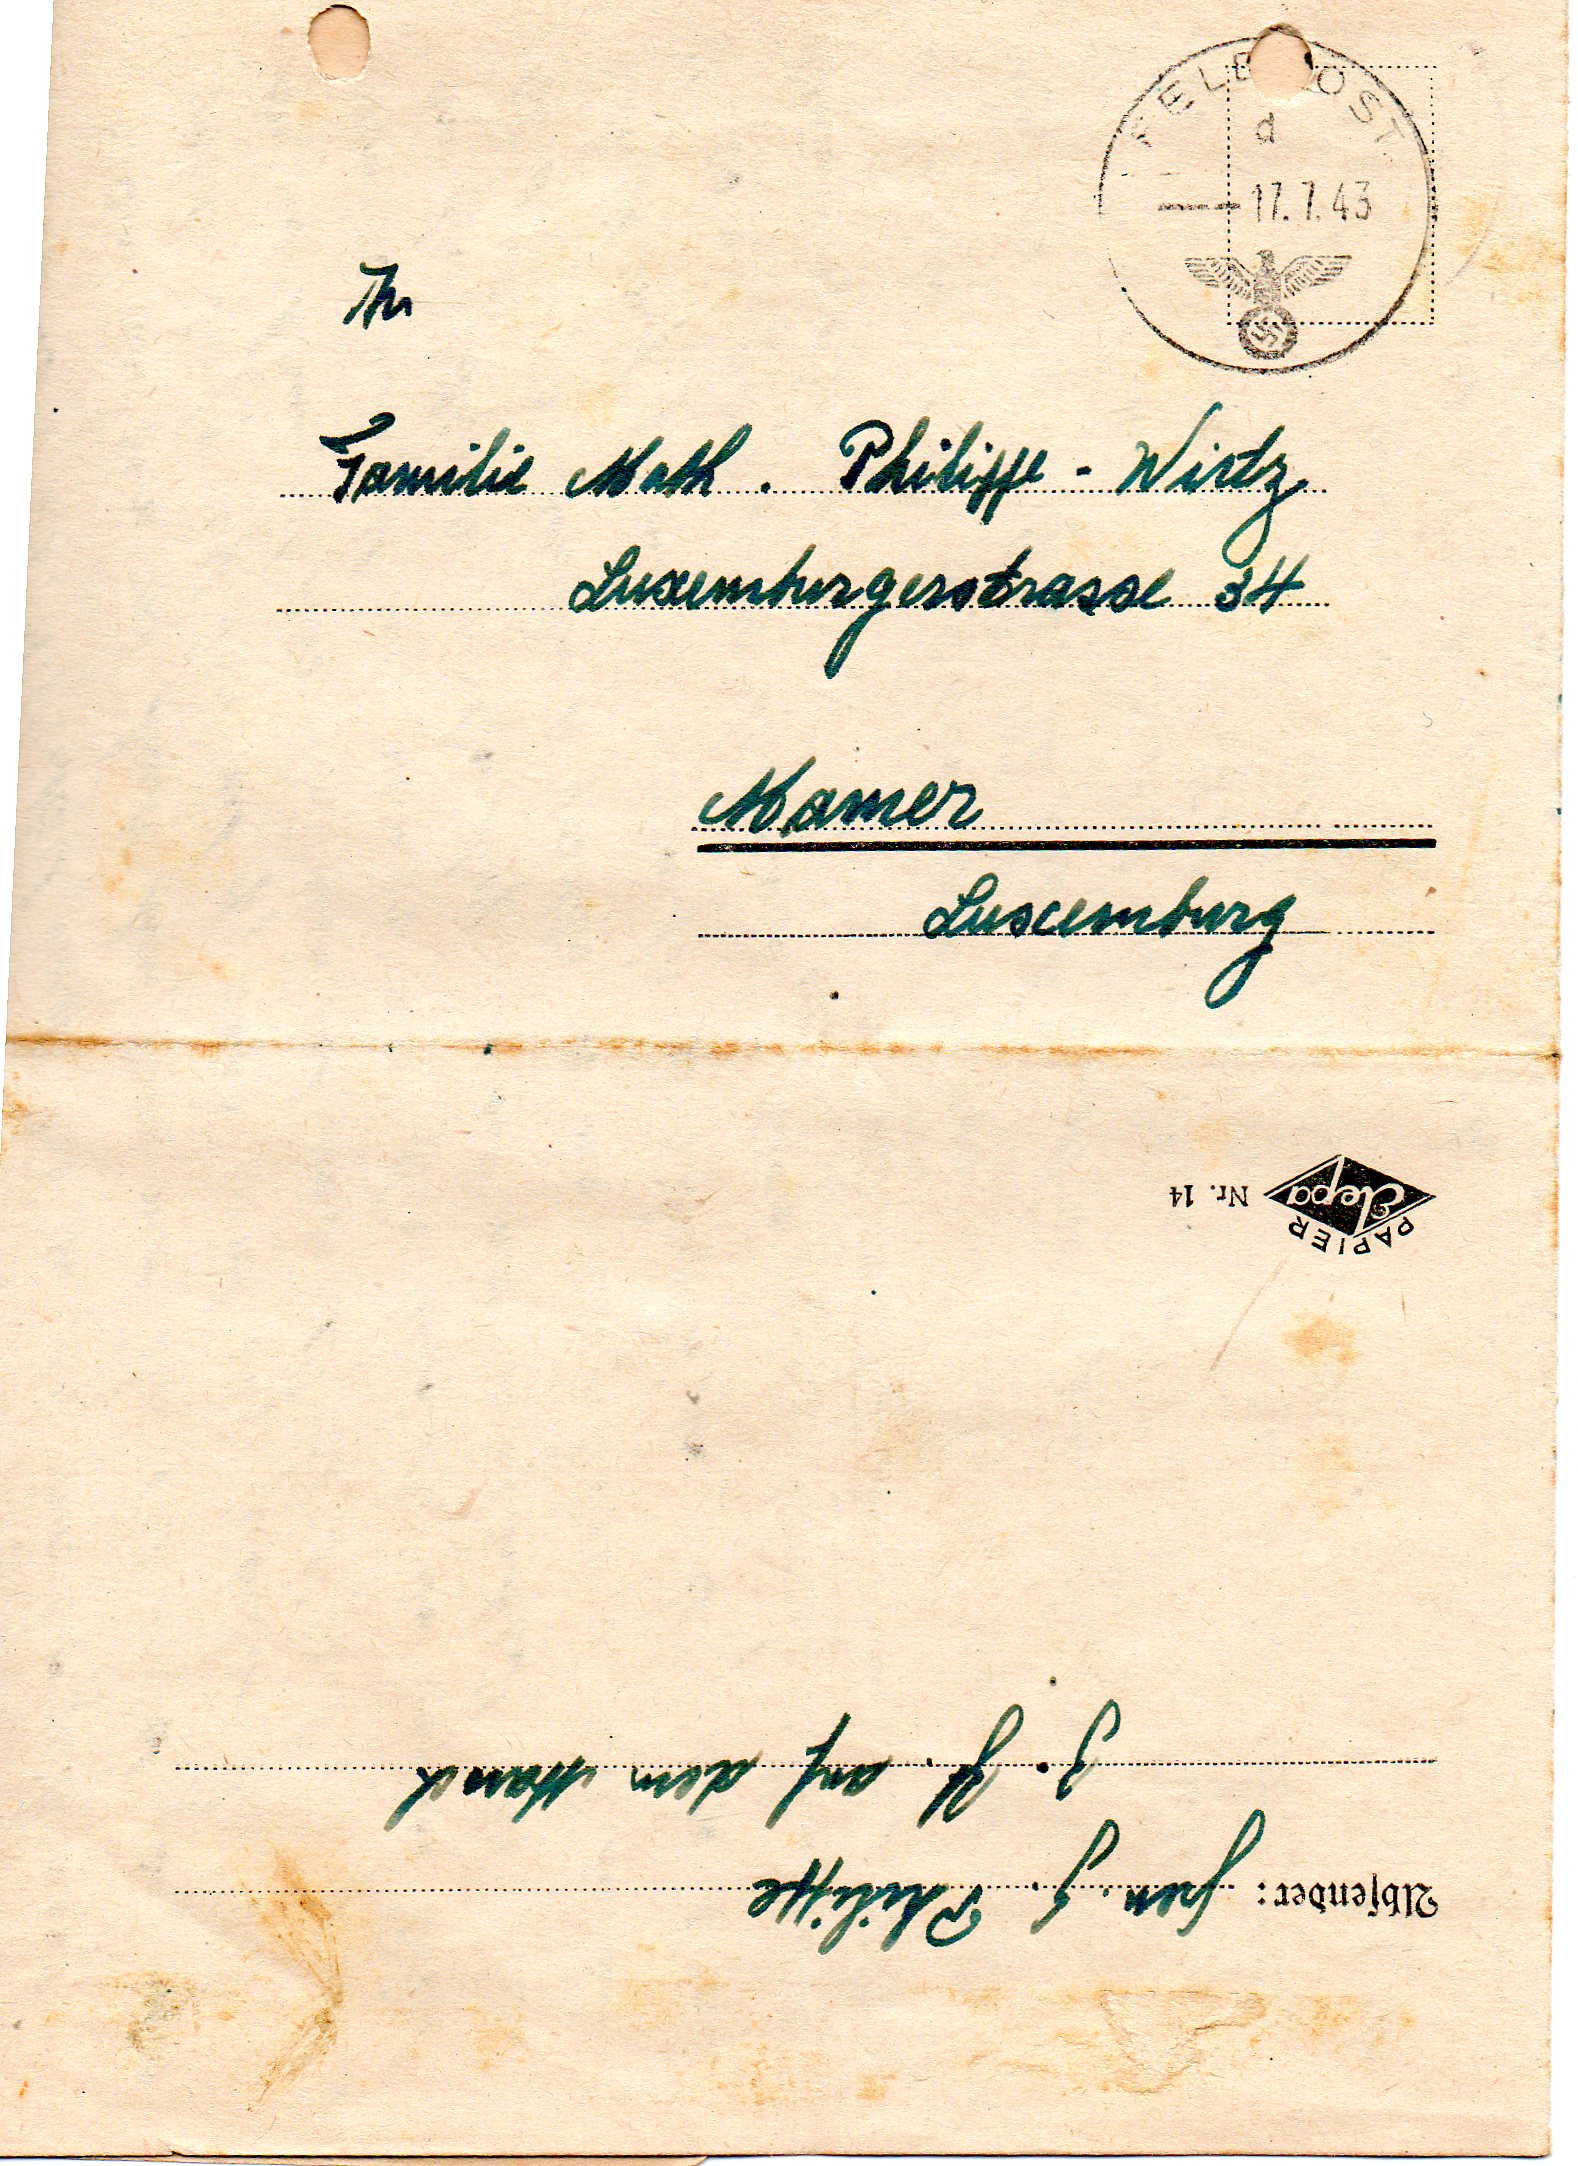 FELDPOST
d
17.7.43
An
Familie Math. Philippe - Wirtz
Luxemburgerstrasse 34
Mamer
Luxemburg
PAPIER
Elepa
Nr. 14
Absender: Gren. J. Philippe
z. Zt. auf dem Marsch